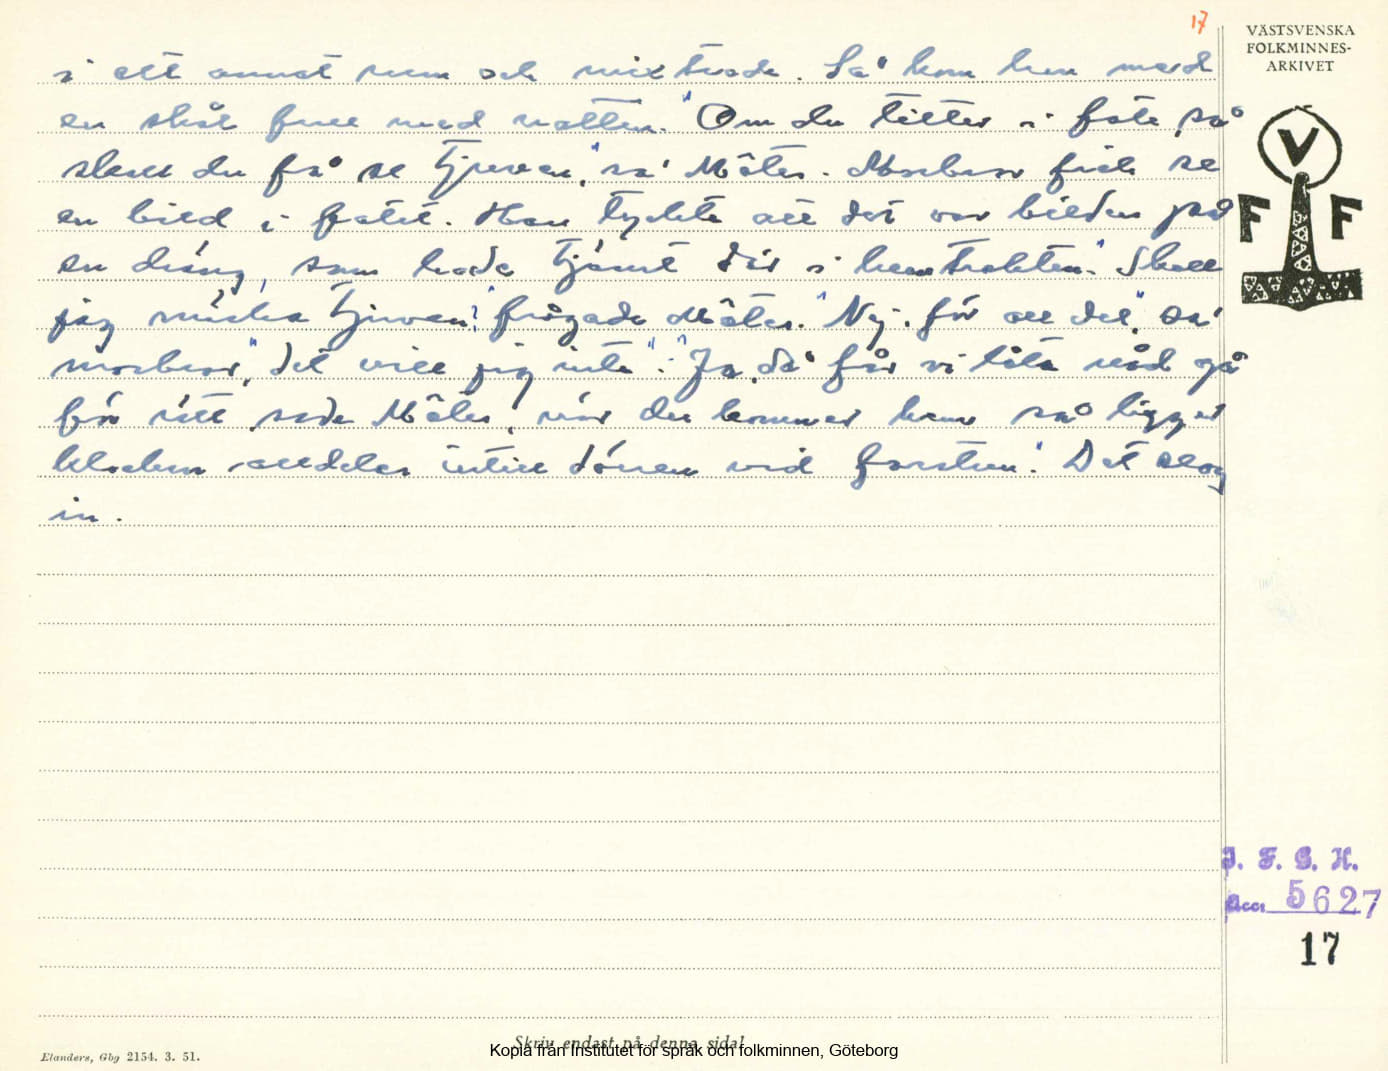 17
VÄSTSVENSKA
FOLKMINNES-
ARKIVET
V
F F
i ett annat rum och mixtrade. Så kom hon med
en skål full med vatten. "Om du tittar i fate, så
skall du få se tjuven," sa' Mäter. Morbror fick se
en bild i fatet. Han tyckte att det var bilden på
en dräng, som hade tjänt där i hemtrakten. "Skall
jag märka tjuven?" frågade Mäter. "Nej, för all del," sa'
morbror, "det vill jag inte". "Ja, då får vi låta nåd gå
för rätt, sade Mäter, när du kommer hem så ligger
klockan alldeles intill dörren vid farstun." Det slog
in.
J. F. G. H.
Acc: 5627
17
Skriv endast på denna sida!
Kopia från Institutet för språk och folkminnen, Göteborg
Elanders, Gbg 2154. 3. 51.